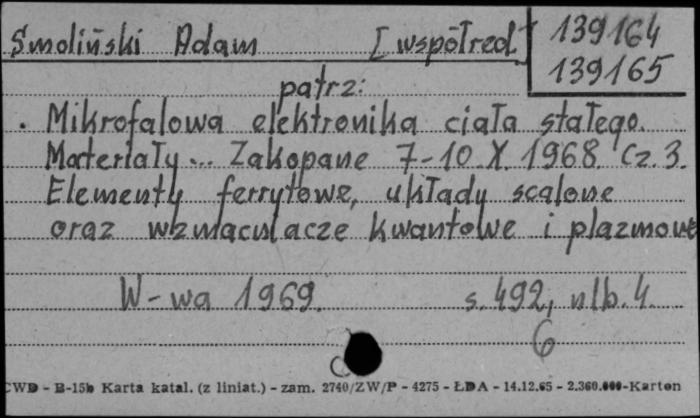 Smoliński Adam [współred.]
139164
139165
patrz:
Mikrofalowa elektronika ciała stałego.
Materiały... Zakopane 7-10.X.1968. Cz.3.
Elementy ferrytowe, układy scalone
oraz wzmacniacze kwantowe i plazmowe
W-wa 1969. s. 492, nlb. 4.
6
CWD - B-15b Karta katal. (z liniat.) - zam. 2740/ZW/P - 4275 - ŁDA - 14.12.65 - 2.360.000-Karton